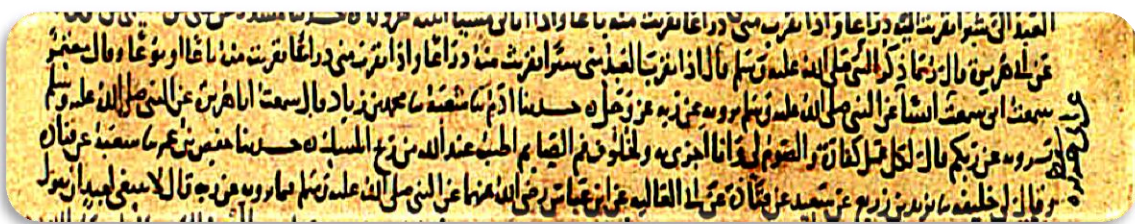 العبد الى شبرا تقربت اليه ذراعا واذا تقرب منى ذراعا تقربت منه باعا واذا اتانى مشيا اتيته هرولة حدثنا مسدد عن
عن ابى هريرة قال ربما ذكر النبى صلى الله عليه وسلم قال اذا تقرب العبد منى شبرا تقربت منه ذراعا واذا تقرب منى ذراعا تقربت منه باعا او بوعا وقال معتمر
سمعت ابى سمعت انسا عن النبى صلى الله عليه وسلم يرويه عن ربه عز وجل حدثنا ادم نا شعبة نا محمد بن زياد قال سمعت ابا هريرة عن النبى صلى الله عليه وسلم
يرويه عن ربكم قال لكل عمل كفارة والصوم لى وانا اجزى به ولخلوف فم الصايم اطيب عند الله من ريح المسك حدثنا حفص بن عمر نا شعبة عن قتادة
وقال لى خليفة نا يزيد بن زريع عن سعيد عن قتادة عن ابى العالية عن ابن عباس رضى الله عنهما عن النبى صلى الله عليه وسلم فيما يرويه عن ربه قال لا ينبغى لعبد ان يقول